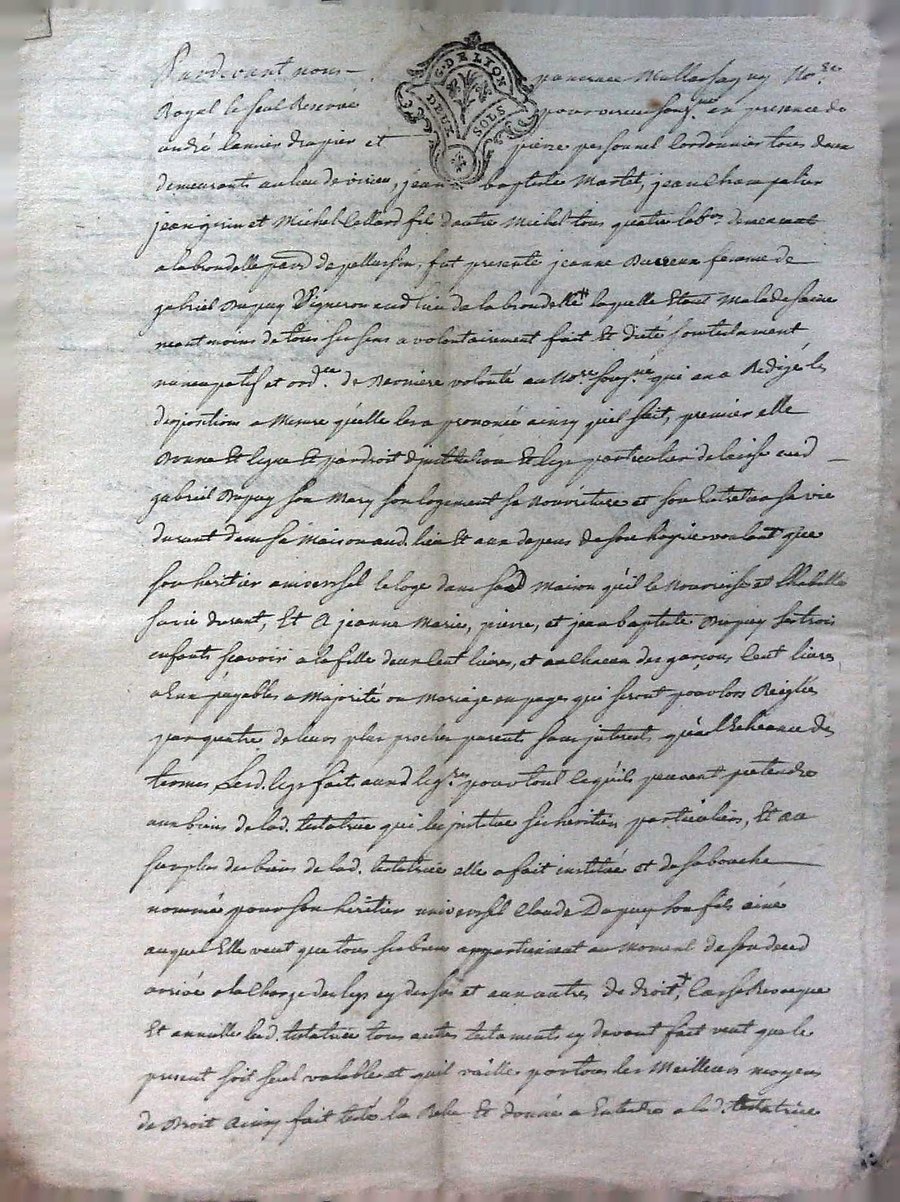 Pardevant nous
G. DE LYON
DEUX SOLS
No.re
Royal le seul Reservé pour virieu soug.né en presence de
andré lanier drapier et pierre personnel Cordonnier tous deux
demeurants au lieu de virieu, jean baptiste Martel, jean Champalier
jean grin et Michel Collard fils d'autre Michel tous quatre lab.rs demeurant
a la brondelle par.se de pellussin, fut presente jeanne femme de
gabriel Dupuy Vigneron aud. lieu de la brondelle laquelle Etant Malade saine
neantmoins de tous ses sens a volontairement fait Et dicté son testament
nuncupatif et ord.ce de Derniere volonté au No.re soug.né qui en a Redigé les
dispositions a Mesure qu'elle les a prononcé ainsy qu'il suit, premier elle
Donne Et legue Et par droit d'institution Et legs particulier delaisse aud
gabriel Dupuy son Mary son logement sa Nourriture et son Entretien sa vie
durant dans sa Maison aud. lieu Et aux depens de son hoyrie voulant que
son heritier universel le loge dans sad Maison qu'il le Nourrisse et l'habille
sa vie durant, Et A jeanne Marie, pierre, et jean baptiste Dupuy ses trois
enfants scavoir a la fille deux Cent livres, et a chacun des garçons Cent livres
a Eux payables a Majorité ou Mariage en payes qui seront pour lors Reiglées
par quatre de leurs plus proches parents sans interets qu'a l'Echeance des
termes Lesd. legs fait auxd leg.res pour tout ce qu'ils peuvent pretendre
aux biens de lad. testatrice qui les institue ses heritiers particuliers, Et au
surplus des biens de lad. testatrice elle a fait institué et de sa bouche
nommé pour son heritier universel Claude Dupuy son fils ainé
auquel Elle veut que tous ses biens appartiennent au Moment de son deced
arrivé a la Charge des legs cy dessus et aux autres de droit, Casse Revoque
Et annulle lad. testatrice tous autres testaments cy devant fait veut que le
present soit seul valable et qu'il vaille par tous les Meilleurs moyens
de Droit Ainsy fait testé leu Relu Et donné a Entendre a lad. testatrice